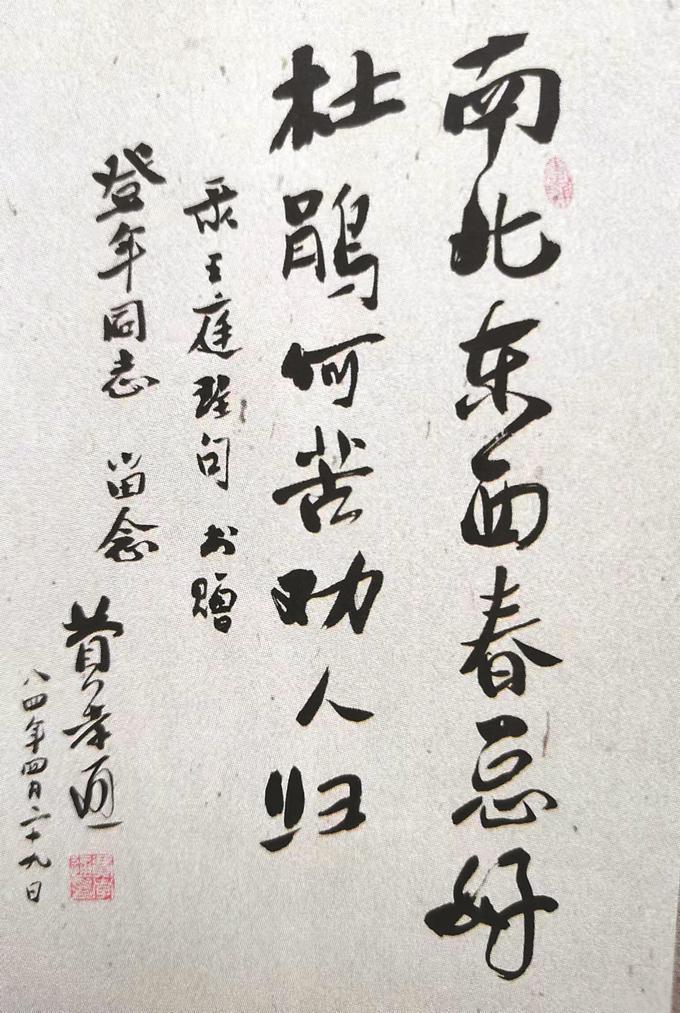 南北东西春总好
杜鹃何苦劝人归
录王庭珪句 书赠
登年同志 留念
费孝通
八四年四月二十九日